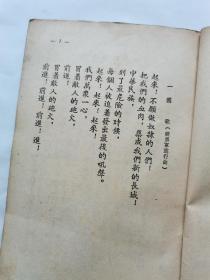 — 1 —
一 國 歌（義勇軍進行曲）
起來！不願做奴隸的人們！
把我們的血肉，築成我們新的長城！
中華民族，
到了最危險的時候，
每個人被迫着發出最後的吼聲。
起來！起來！起來！
我們萬眾一心，
冒着敵人的炮火，
前進！
冒着敵人的炮火，
前進！前進！前進！進！